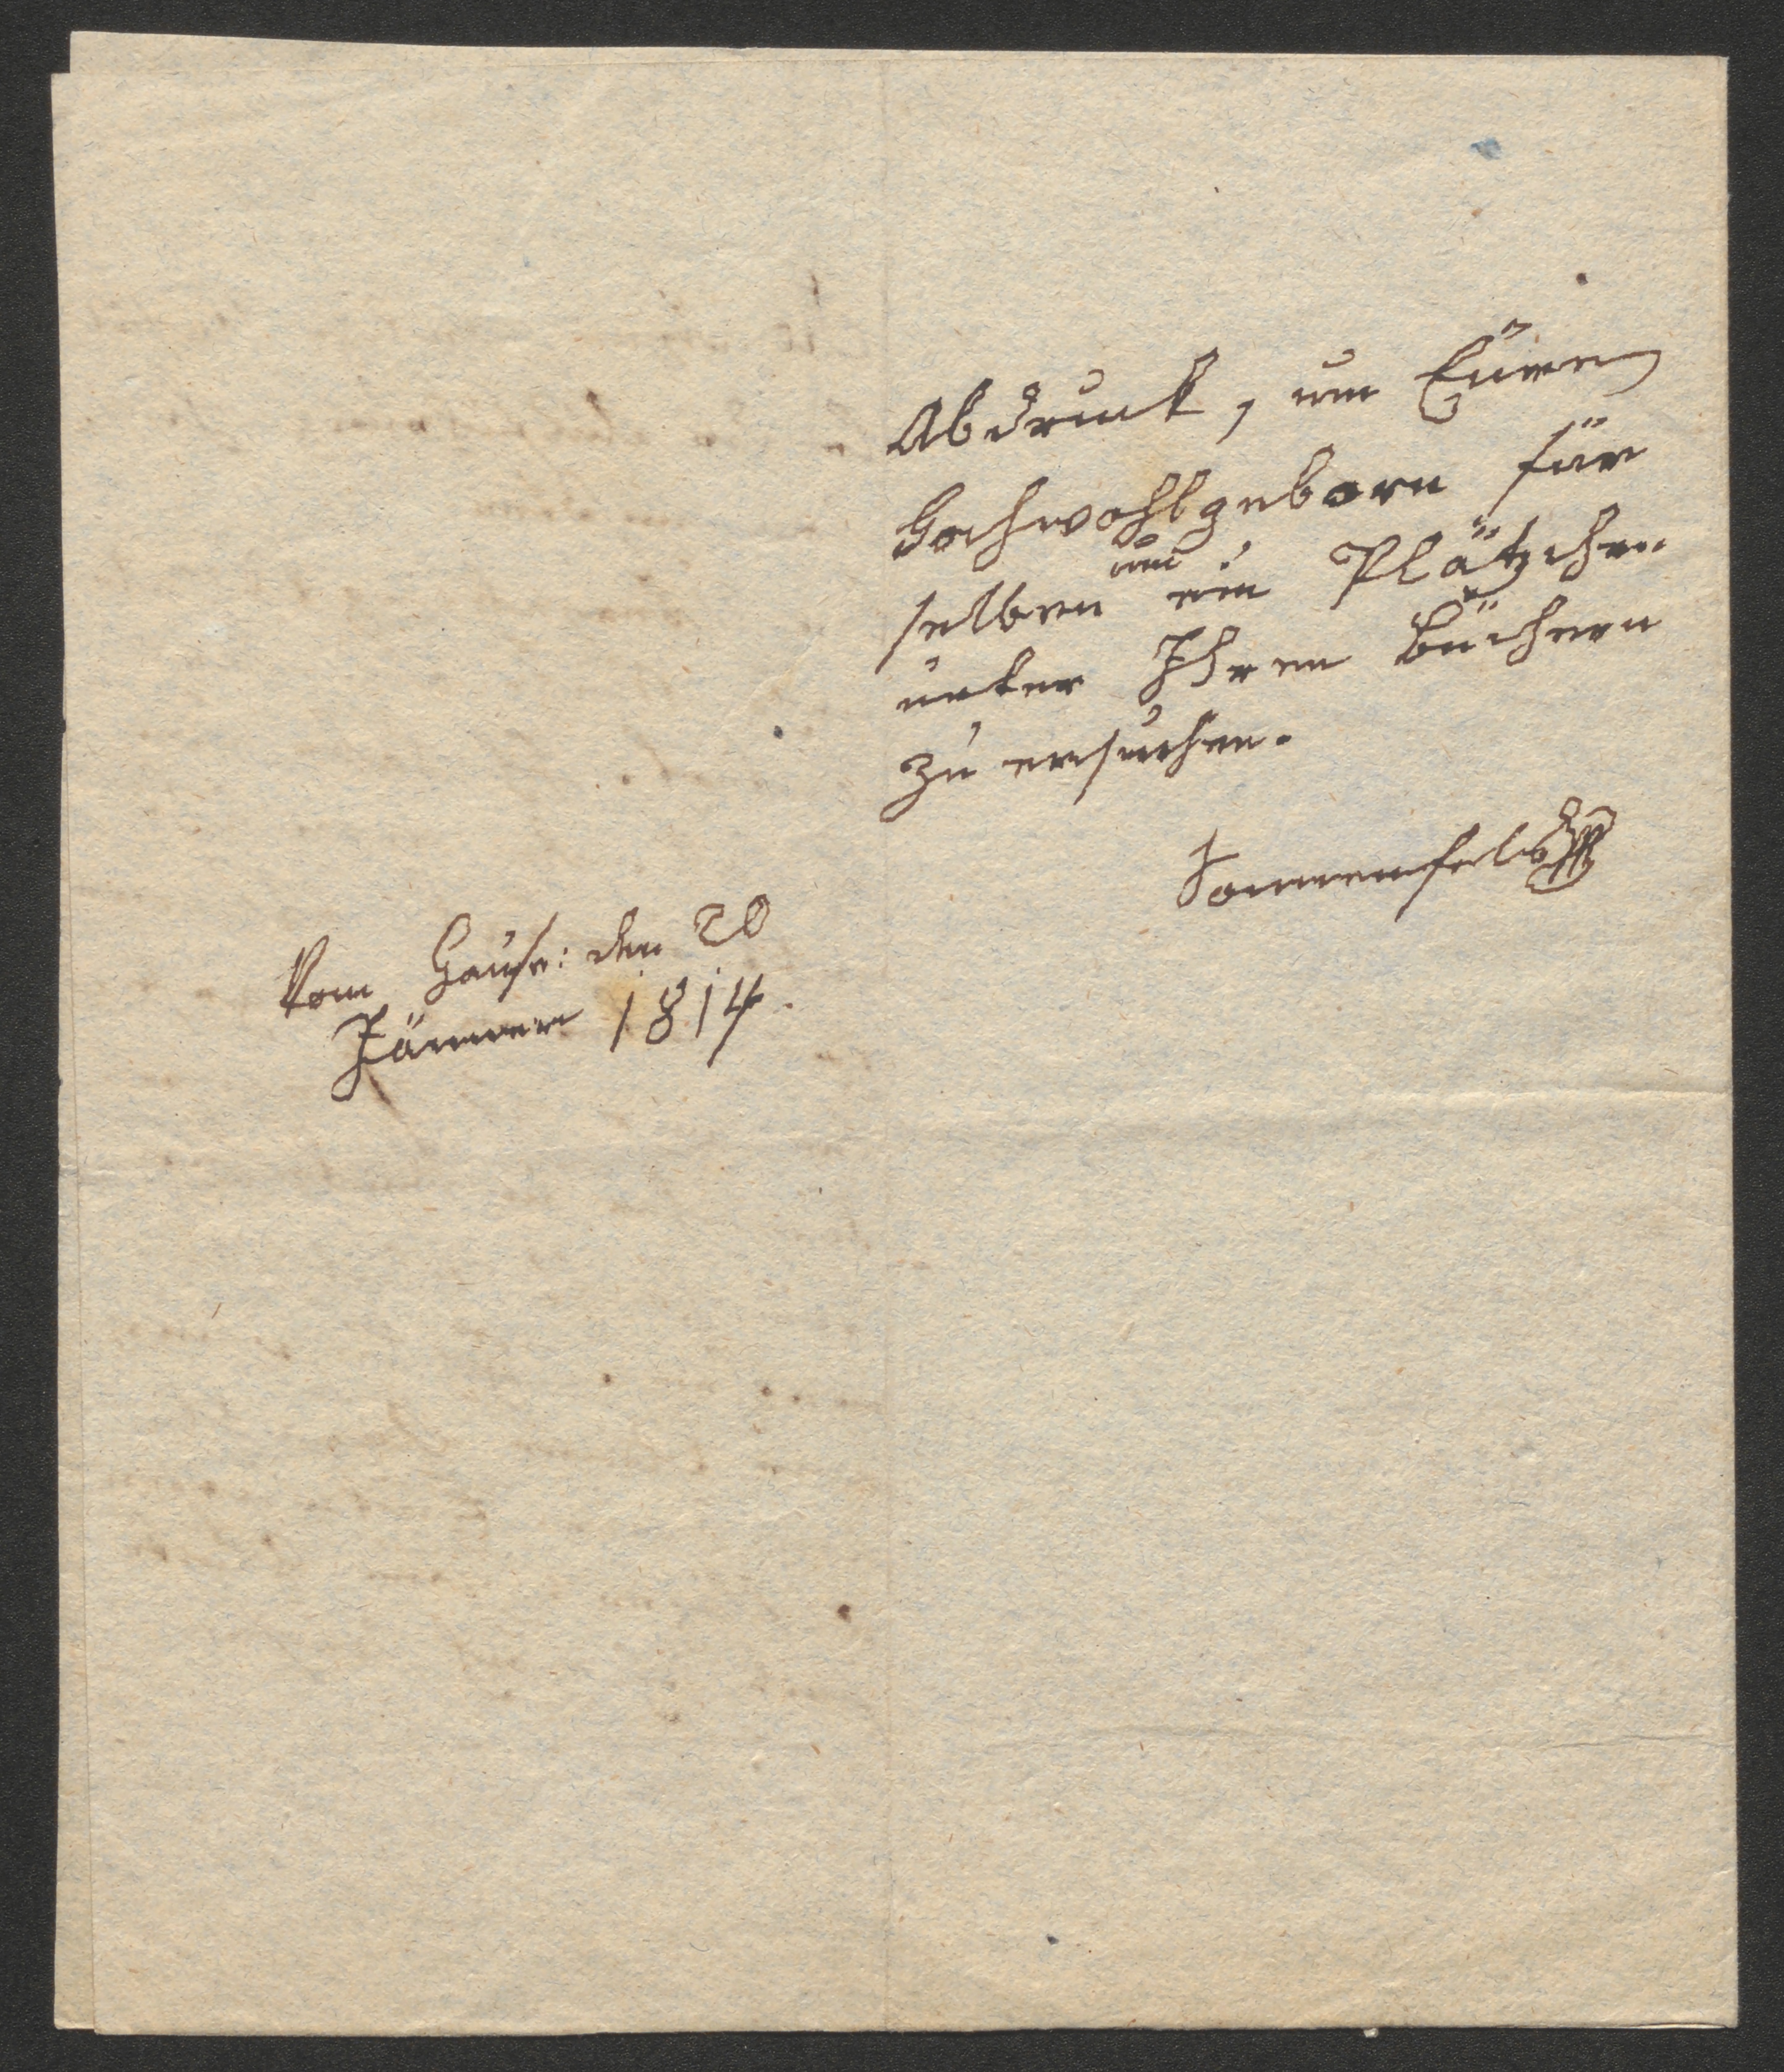 Abdruck, um Euere
Hochwohlgeborn für
selben um ein Plätzchen
unter Ihren Büchern
zu ersuchen.
Sonnenfels
Vom Hause: den 20
Jänner 1814.